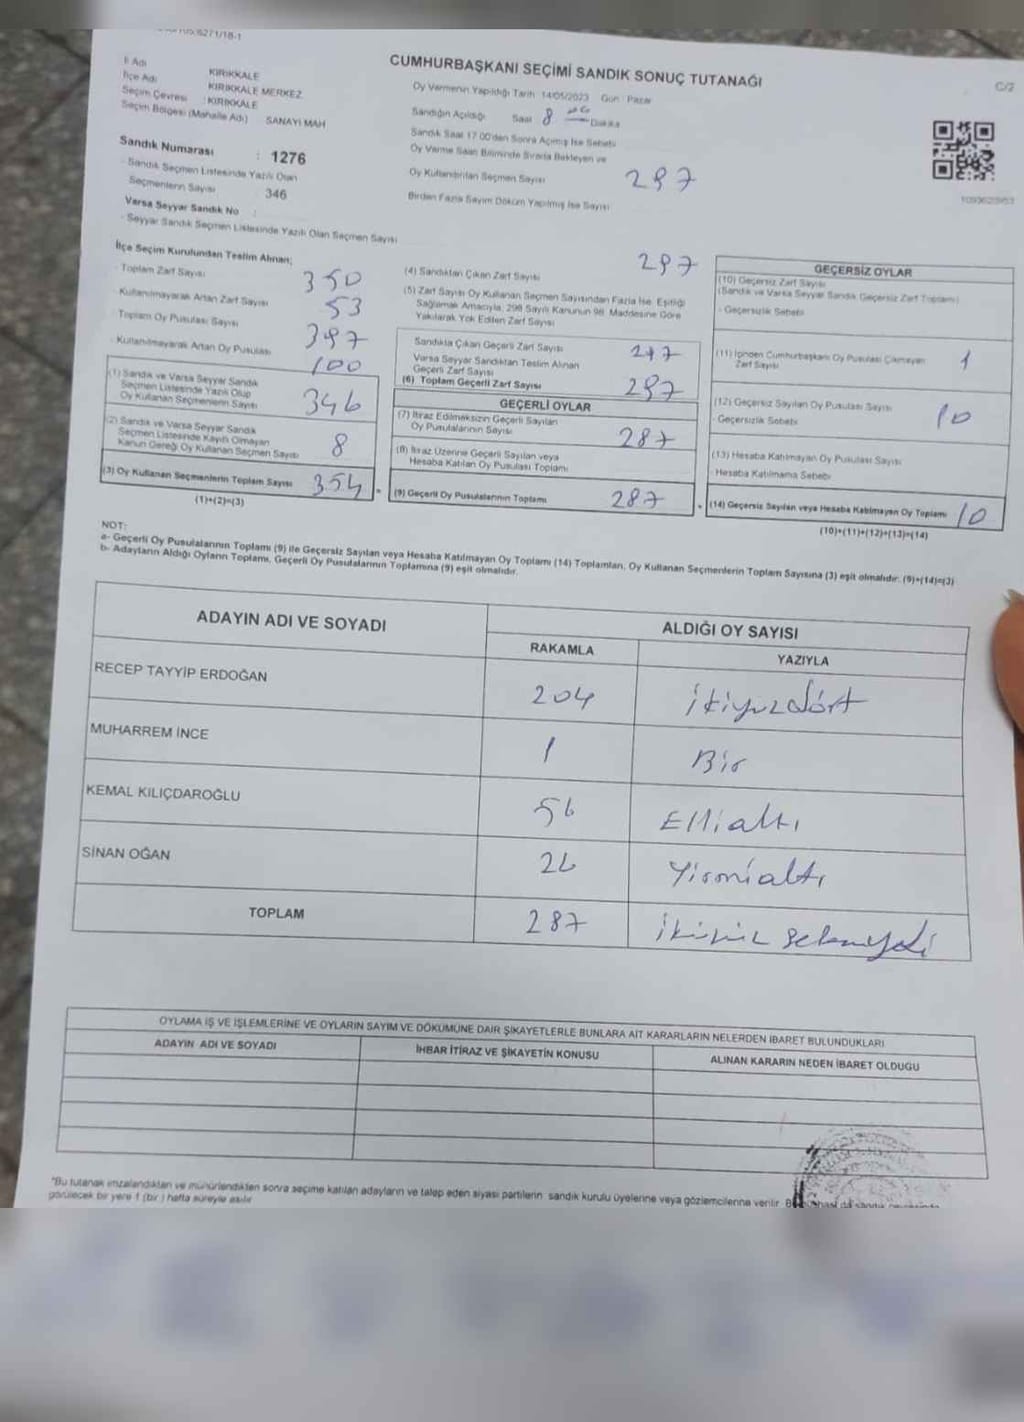 CUMHURBAŞKANI SEÇİMİ SANDIK SONUÇ TUTANAĞI
C/2
İl Adı KIRIKKALE
İlçe Adı KIRIKKALE MERKEZ
Seçim Çevresi : KIRIKKALE
Seçim Bölgesi (Mahalle Adı) SANAYİ MAH
Sandık Numarası : 1276
- Sandık Seçmen Listesinde Yazılı Olan
Seçmenlerin Sayısı 346
Varsa Seyyar Sandık No :
- Seyyar Sandık Seçmen Listesinde Yazılı Olan Seçmen Sayısı
Oy Vermenin Yapıldığı Tarih 14/05/2023 Gün : Pazar
Sandığın Açıldığı Saat 8 Dakika
Sandık Saat 17.00'den Sonra Açılmış İse Sebebi
Oy Verme Saati Bitiminde Sırada Bekleyen ve
Oy Kullandırılan Seçmen Sayısı 297
Birden Fazla Sayım Döküm Yapılmış İse Sayısı
İlçe Seçim Kurulundan Teslim Alınan;
- Toplam Zarf Sayısı 350
- Kullanılmayarak Artan Zarf Sayısı 53
- Toplam Oy Pusulası Sayısı 397
- Kullanılmayarak Artan Oy Pusulası 100
(1) Sandık ve Varsa Seyyar Sandık
Seçmen Listesinde Yazılı Olup
Oy Kullanan Seçmenlerin Sayısı 346
(2) Sandık ve Varsa Seyyar Sandık
Seçmen Listesinde Kayıtlı Olmayan
Kanun Gereği Oy Kullanan Seçmen Sayısı 8
(3) Oy Kullanan Seçmenlerin Toplam Sayısı 354
(1)+(2)=(3)
(4) Sandıktan Çıkan Zarf Sayısı 297
(5) Zarf Sayısı Oy Kullanan Seçmen Sayısından Fazla İse, Eşitliği
Sağlamak Amacıyla, 298 Sayılı Kanunun 98. Maddesine Göre
Yakılarak Yok Edilen Zarf Sayısı
Sandıkta Çıkan Geçerli Zarf Sayısı 297
Varsa Seyyar Sandıktan Teslim Alınan
Geçerli Zarf Sayısı
(6) Toplam Geçerli Zarf Sayısı 297
GEÇERLİ OYLAR
(7) İtiraz Edilmeksizin Geçerli Sayılan
Oy Pusulalarının Sayısı 287
(8) İtiraz Üzerine Geçerli Sayılan veya
Hesaba Katılan Oy Pusulası Toplamı
(9) Geçerli Oy Pusulalarının Toplamı 287
GEÇERSİZ OYLAR
(10) Geçersiz Zarf Sayısı
(Sandık ve Varsa Seyyar Sandık Geçersiz Zarf Toplamı)
- Geçersizlik Sebebi
(11) İçinden Cumhurbaşkanı Oy Pusulası Çıkmayan
Zarf Sayısı 1
(12) Geçersiz Sayılan Oy Pusulası Sayısı 10
- Geçersizlik Sebebi
(13) Hesaba Katılmayan Oy Pusulası Sayısı
- Hesaba Katılmama Sebebi
(14) Geçersiz Sayılan veya Hesaba Katılmayan Oy Toplamı 10
(10)+(11)+(12)+(13)=(14)
NOT:
a- Geçerli Oy Pusulalarının Toplamı (9) ile Geçersiz Sayılan veya Hesaba Katılmayan Oy Toplamı (14) Toplamları, Oy Kullanan Seçmenlerin Toplam Sayısına (3) eşit olmalıdır. (9)+(14)=(3)
b- Adayların Aldığı Oyların Toplamı, Geçerli Oy Pusulalarının Toplamına (9) eşit olmalıdır.
ADAYIN ADI VE SOYADI
ALDIĞI OY SAYISI
RAKAMLA YAZIYLA
RECEP TAYYİP ERDOĞAN 204 ikiyüzdört
MUHARREM İNCE 1 Bir
KEMAL KILIÇDAROĞLU 56 Ellialtı
SİNAN OĞAN 26 Yirmialtı
TOPLAM 287 ikiyüz seksenyedi
OYLAMA İŞ VE İŞLEMLERİNE VE OYLARIN SAYIM VE DÖKÜMÜNE DAİR ŞİKAYETLERLE BUNLARA AİT KARARLARIN NELERDEN İBARET BULUNDUKLARI
ADAYIN ADI VE SOYADI
İHBAR İTİRAZ VE ŞİKAYETİN KONUSU
ALINAN KARARIN NEDEN İBARET OLDUĞU
"Bu tutanak imzalandıktan ve mühürlendikten sonra seçime katılan adayların ve talep eden siyasi partilerin sandık kurulu üyelerine veya gözlemcilerine verilir.
görülecek bir yere 1 (bir ) hafta süreyle asılır